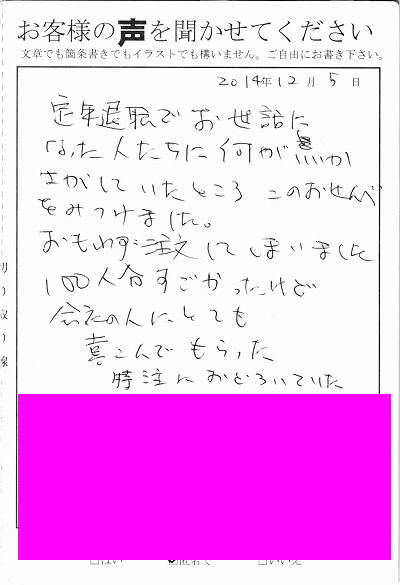 お客様の声を聞かせてください
文章でも箇条書きでもイラストでも構いません。ご自由にお書き下さい。
2014年12月5日
定年退職でお世話に
なった人たちに何が良いか
さがしていたところ このおせんべ
をみつけました。
おもわず注文してしまいました
100人分すごかったけど
会社の人にとても
喜こんでもらった
特注におどろいていた
切り取り線
□はい ☑匿名で □いいえ